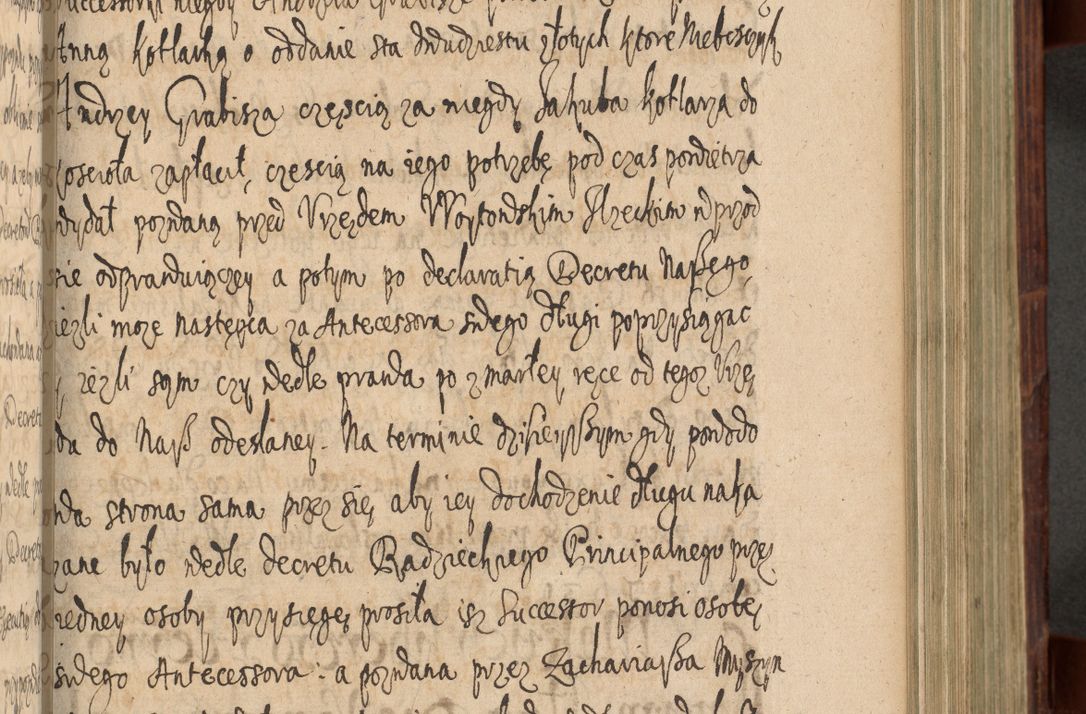 Anną kotlarką o oddanie sta dwudziestu złotych ktore Niebosczyk
Andrzey Grabisza częscią za niegdy Jakuba kotlarza do
koscioła zapłacił, częscią na iego potrzebę pod czas powietrza
wydał pozwaną przed Vrzędem Woytowskim Ilzeckim wprzod
sie odprawuiączey a potym po declaratią Decretu Naszego
ieżli może następca za Antecessora swego długi poprzysiągac
ieżli sąm czy wedle prawa po zmarłey ręce od tegoż Vrzę
da do Nas odesłaney. Na terminie dzisieyszym gdy powodo
wa strona sama przez się, aby iey dochodzenie długu naka
zane było wedle decretu Radzieckiego Principalnego przez
iedney osoby przysięgę prosiła isz Successor ponosi osobę
swego Antecessora: a pozwana przez Zachariasza